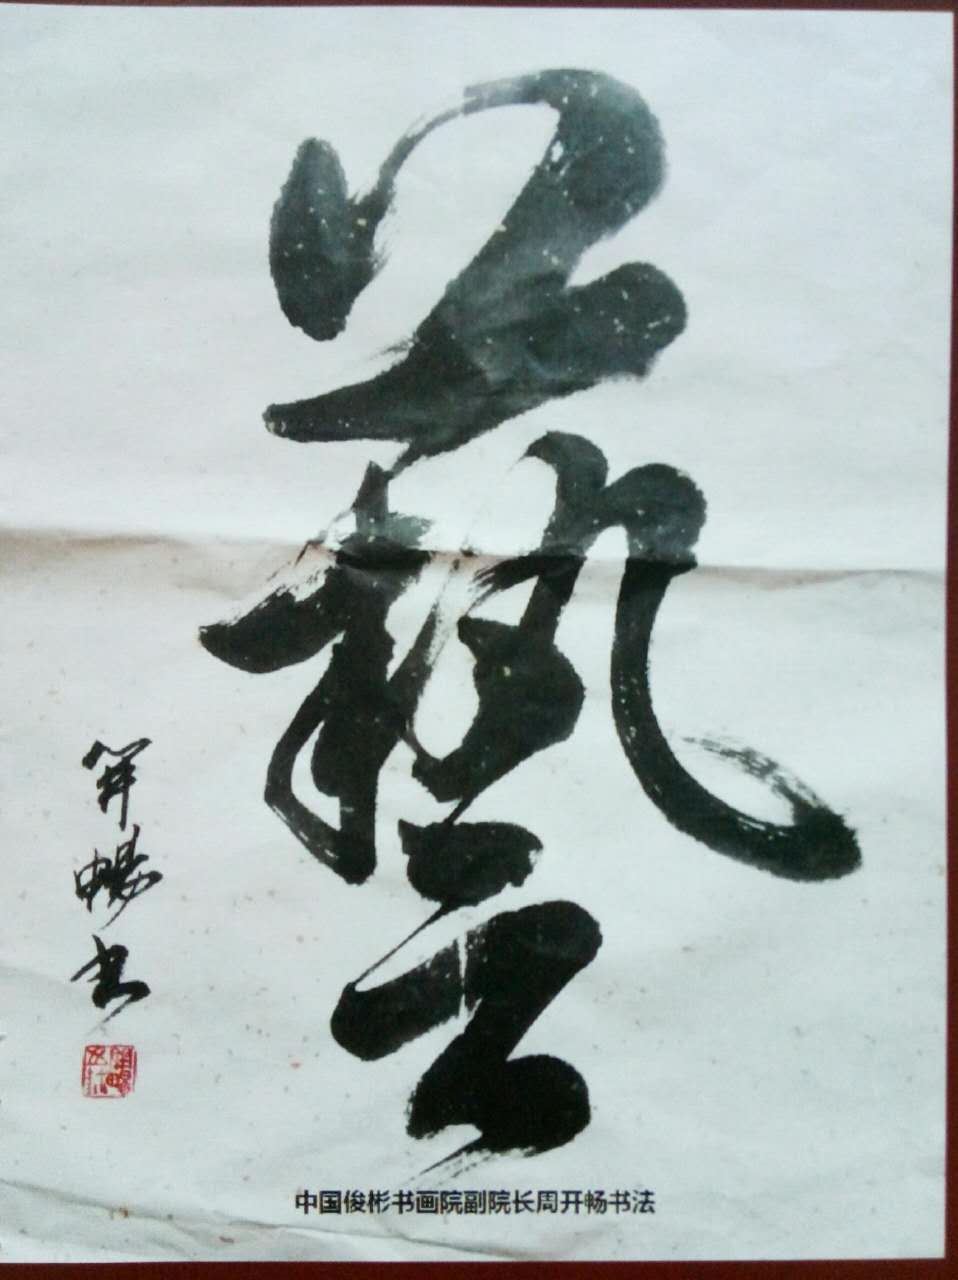 藝
開暢书
中国俊彬书画院副院长周开畅书法